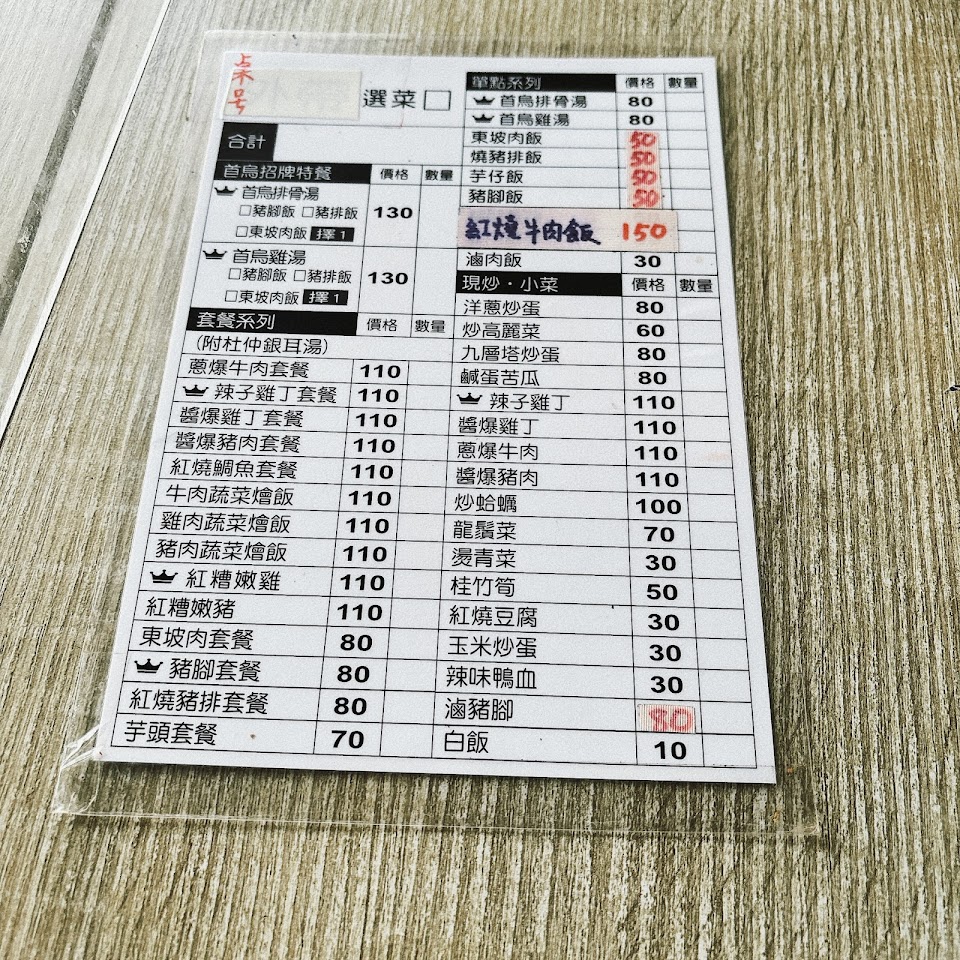 点不号
選菜□
合計
首烏招牌特餐 價格 數量
首烏排骨湯
□豬腳飯 □豬排飯 130
□東坡肉飯 擇1
首烏雞湯
□豬腳飯 □豬排飯 130
□東坡肉飯 擇1
套餐系列 價格 數量
(附杜仲銀耳湯)
蔥爆牛肉套餐 110
辣子雞丁套餐 110
醬爆雞丁套餐 110
醬爆豬肉套餐 110
紅燒鯛魚套餐 110
牛肉蔬菜燴飯 110
雞肉蔬菜燴飯 110
豬肉蔬菜燴飯 110
紅糟嫩雞 110
紅糟嫩豬 110
東坡肉套餐 80
豬腳套餐 80
紅燒豬排套餐 80
芋頭套餐 70
單點系列 價格 數量
首烏排骨湯 80
首烏雞湯 80
東坡肉飯 50
燒豬排飯 50
芋仔飯 50
豬腳飯 50
紅燒牛肉飯 150
滷肉飯 30
現炒·小菜 價格 數量
洋蔥炒蛋 80
炒高麗菜 60
九層塔炒蛋 80
鹹蛋苦瓜 80
辣子雞丁 110
醬爆雞丁 110
蔥爆牛肉 110
醬爆豬肉 110
炒蛤蠣 100
龍鬚菜 70
燙青菜 30
桂竹筍 50
紅燒豆腐 30
玉米炒蛋 30
辣味鴨血 30
滷豬腳 80
白飯 10